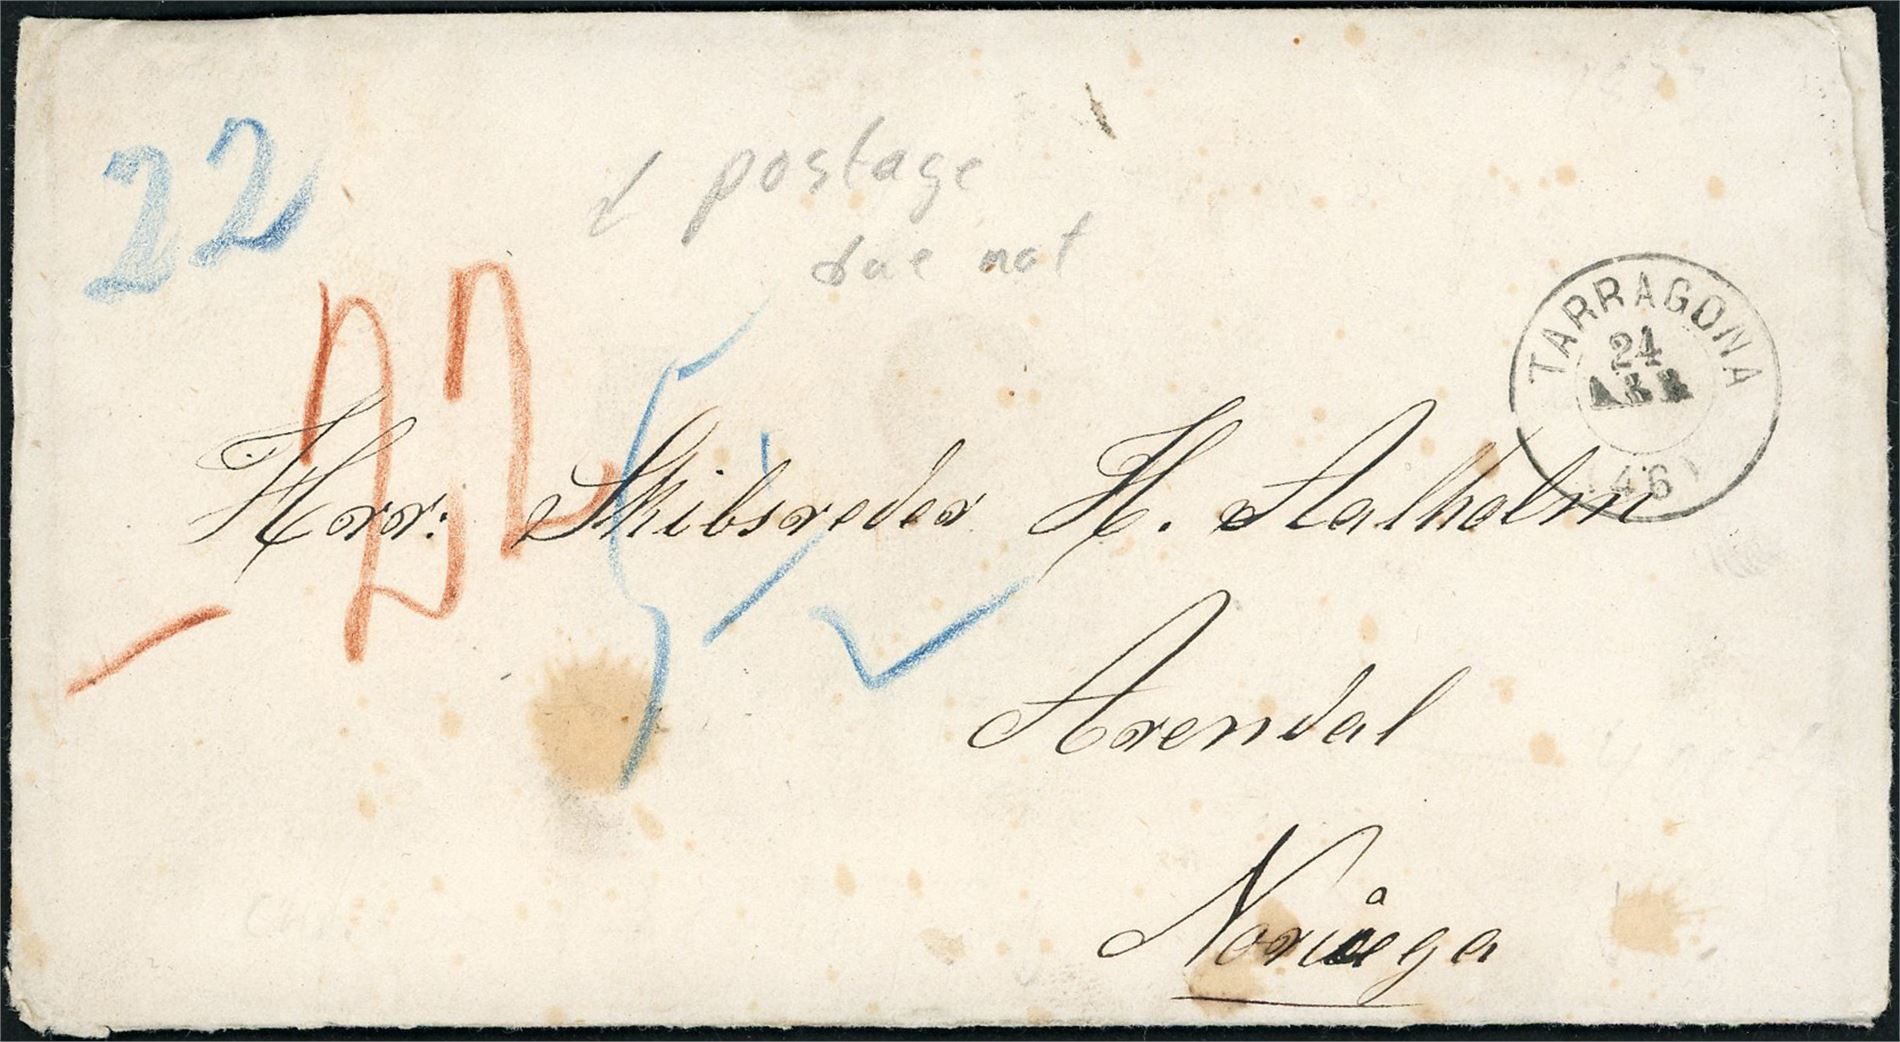 22
postage
due not
22
TARRAGONA
24
ABR
(46)
Herr: Skibsreder H. Aalholm
Arendal
Noruega